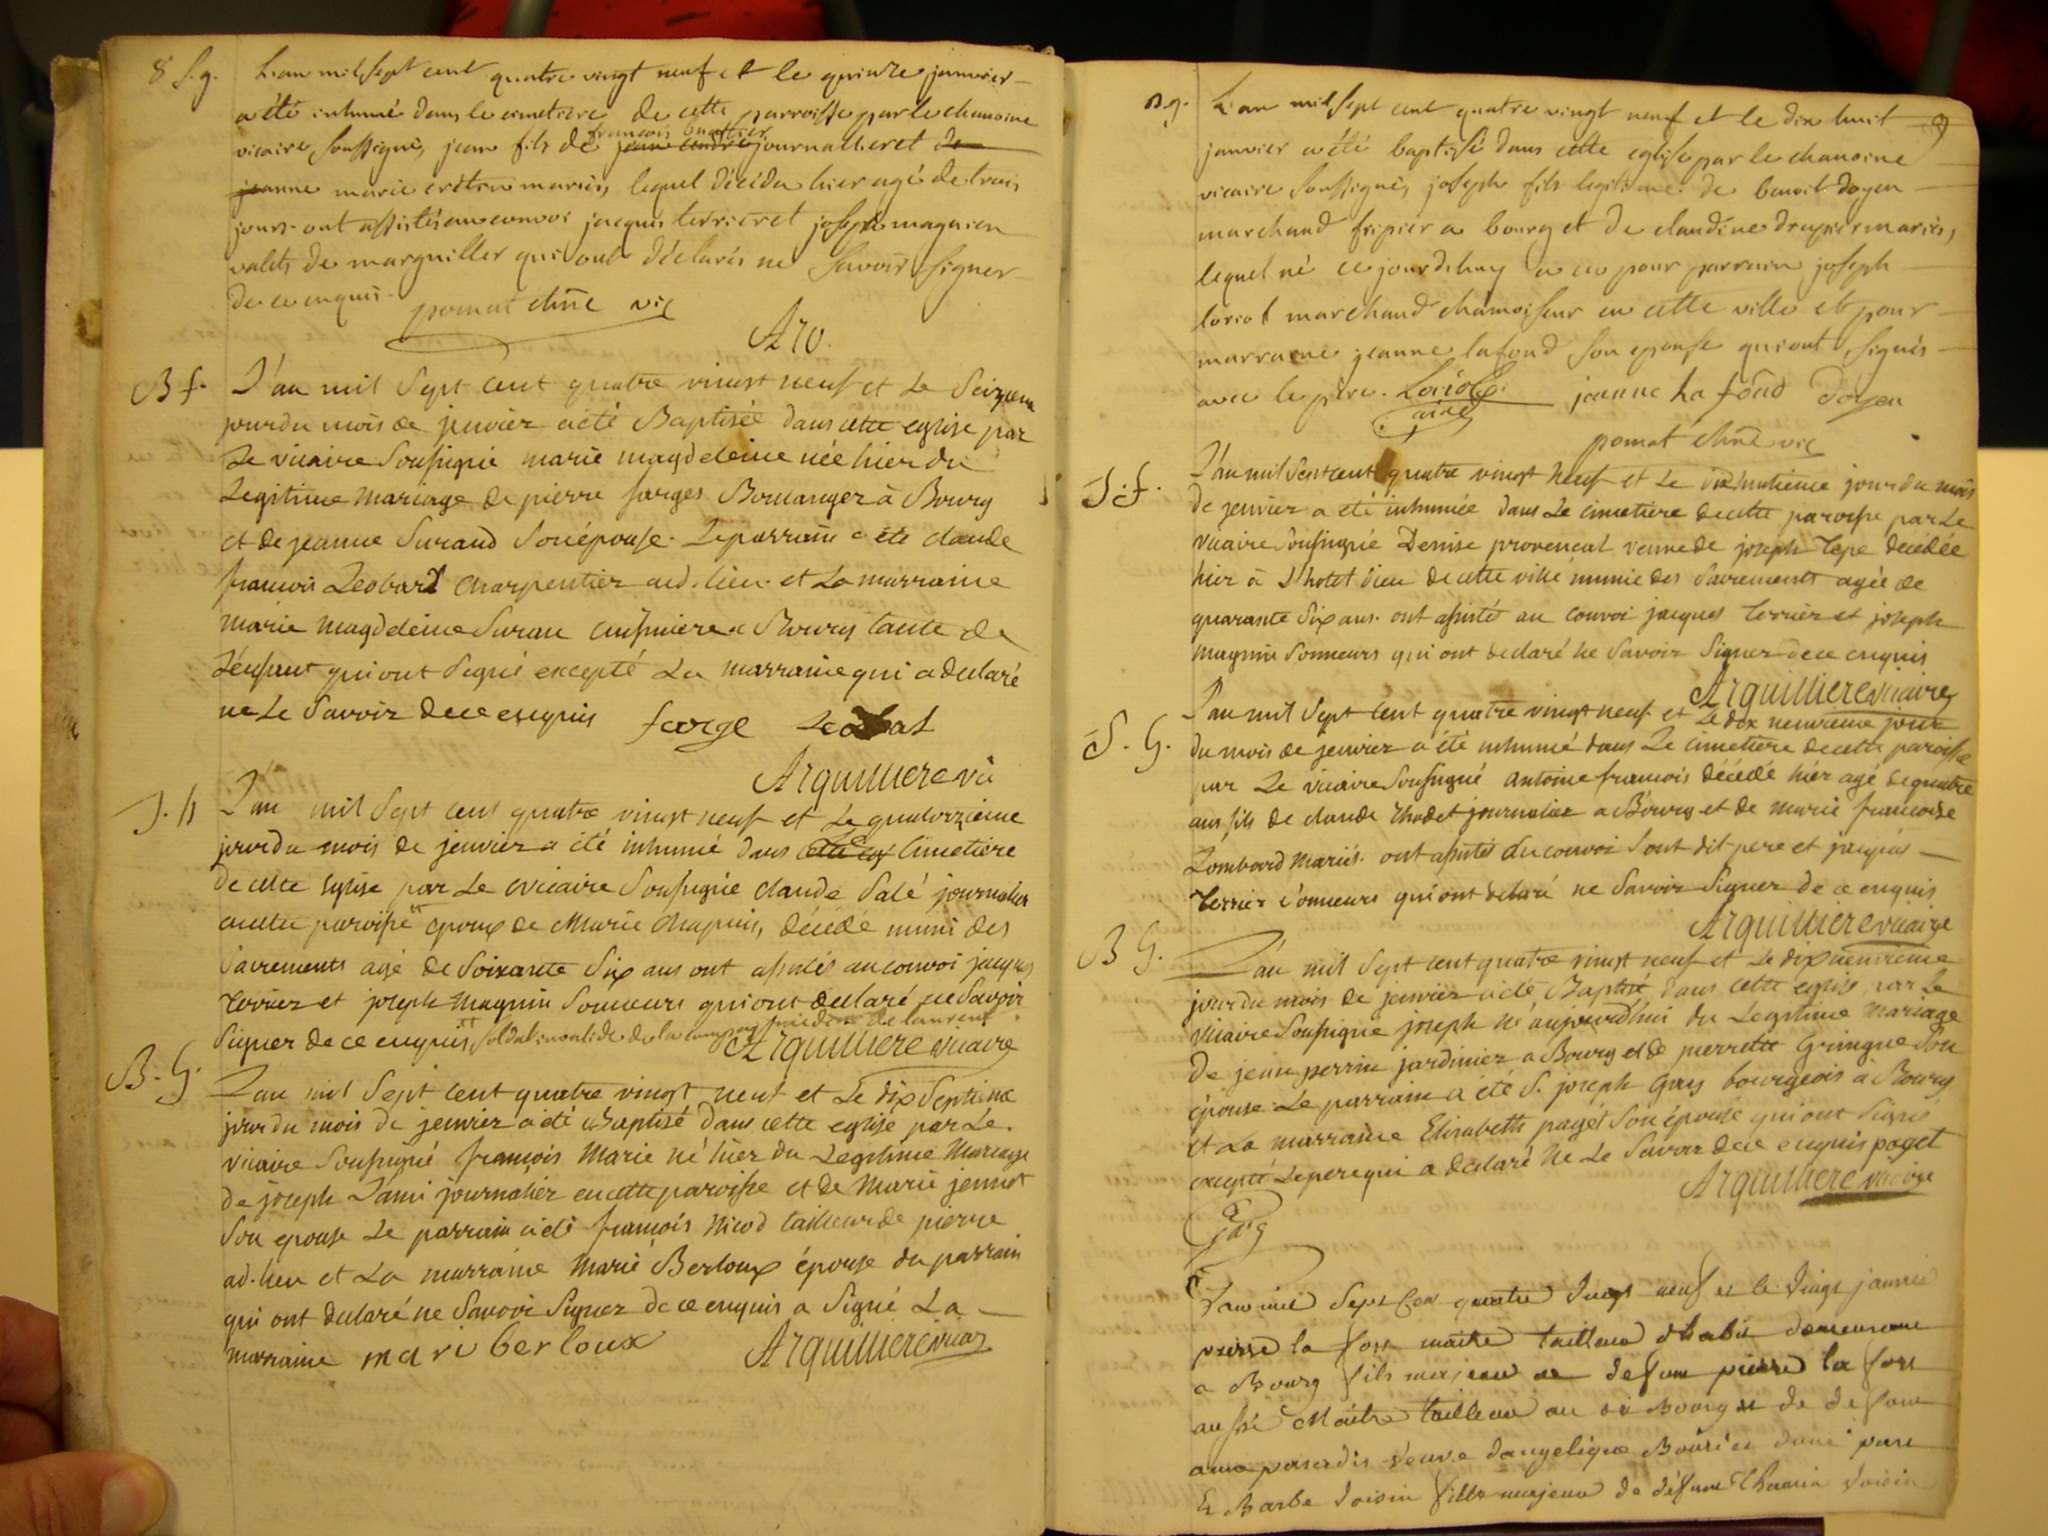 8 S.g. L'an mil sept cent quatre vingt neuf et le quinze janvier
a été inhumé dans le cimetiere de cette parroisse par le chanoine
vicaire soussigné, jean fils de françois journallier et de
jeanne marie mariés, lequel décéda hier agé de trois
jours. ont assistés au convoi jacques terrier et joseph magnien
valets de marguillier qui ont déclarés ne savoir signer
de ce enquis. pomat chne vic
Aro.
B f. L'an mil sept cent quatre vingt neuf et le seizieme
jour du mois de jenvier a été Baptisée dans cette eglise par
Le vicaire soussigné marie magdeleine née hier du
Legitime mariage de pierre farges Boulanger à Bourg
et de jeanne Suraud son épouse. Le parrain a été claude
francois Leobard charpentier aud. lieu. et La marraine
marie magdeleine Surau cuisiniere a Bourg tante de
L'enfant qui ont signé excepté La marraine qui a déclaré
ne Le savoir de ce enquis farge Leobat
Arquilliere vic
S. h L'an mil sept cent quatre vingt neuf et Le quatorzieme
jour du mois de jenvier a été inhumé dans cette eg cimetiere
de cette Eglise par Le vicaire soussigné claude Salé journalier
en cette paroisse et epoux de Marie chapuis, décédé muni des
sacrements agé de soixante six ans ont assistés au convoi jacques
terrier et joseph magnin sonneurs qui ont declaré ne savoir
signer de ce enquis, et soldat invalide de la compagnie de laurent
Arquilliere vicaire
B. G. L'an mil sept cent quatre vingt neuf et Le dix septieme
jour du mois de jenvier a été Baptisé dans cette eglise par Le
vicaire soussigné françois Marie né hier du Legitime Mariage
de joseph Lami journalier en cette paroisse et de Marie jennet
son epouse Le parrain a été françois Nicod tailleur de pierre
ad. lieu et La marraine Marie Berloux épouse du parrain
qui ont declaré ne savoir signer de ce enquis a signé La
marraine mari berloux Arquilliere vicar
9
B.g. L'an mil sept cent quatre vingt neuf et le dix huit
janvier a été baptisé dans cette eglise par le chanoine
vicaire soussigné, joseph fils legitime de benoit doyen
marchand fripier a bourg et de claudine drapier mariés,
lequel né ce jourdhuy a eu pour parrain joseph
loriot marchand chamoiseur en cette ville et pour
marraine jeanne lafond son epouse qui ont signés
avec le père. Loriot ainé jeanne La fond Doyen
pomat chne vic
S. f. L'an mil sept cent quatre vingt neuf et Le dixhuitieme jour du mois
de jenvier a été inhumée dans Le cimetiere de cette paroisse par Le
vicaire soussigné Denise provencal veuve de joseph Tepe decédée
hier à L'hotel Dieu de cette ville munie des sacrements agée de
quarante six ans. ont assisté au convoi jacques terrier et joseph
magnin sonneurs qui ont declaré ne savoir signer de ce enquis
Arquilliere vicaire
S. G. L'an mil sept cent quatre vingt neuf et Le dix neuvieme jour
du mois de jenvier a été inhumé dans Le cimetiere de cette paroisse
par Le vicaire soussigné antoine francois décédé hier agé de quatre
ans fils de claude chodet journalier a Bourg et de marie francoise
Lombard mariés. ont assistés au convoi Sont dit pere et jacques
terrier sonneurs qui ont declaré ne savoir signer de ce enquis
Arquilliere vicaire
B G. L'an mil sept cent quatre vingt neuf et Le dix neuvieme
jour du mois de jenvier a été Baptisé dans cette eglise par Le
vicaire soussigné joseph né aujourd'hui du Legitime Mariage
de jean perrin jardinier a Bourg et de pierrette Gringue son
épouse. Le parrain a été S. joseph Gay bourgeois à Bourg
et La marraine Elisabeth paget son épouse qui ont signé
excepté Le pere qui a declaré ne Le savoir de ce enquis paget
Arquilliere vicaire
Gay
L'an mil Sept Cent quatre vingt neuf et le vingt janvier
pierre la fore maitre tailleur d'habit demeurant
a Bourg fils majeur de defunt pierre la fore
aussi Maitre tailleur au dit Bourg et de defunte
veuve d'angelique d'une part
Et Barbe voisin fille majeure de défunt voisin